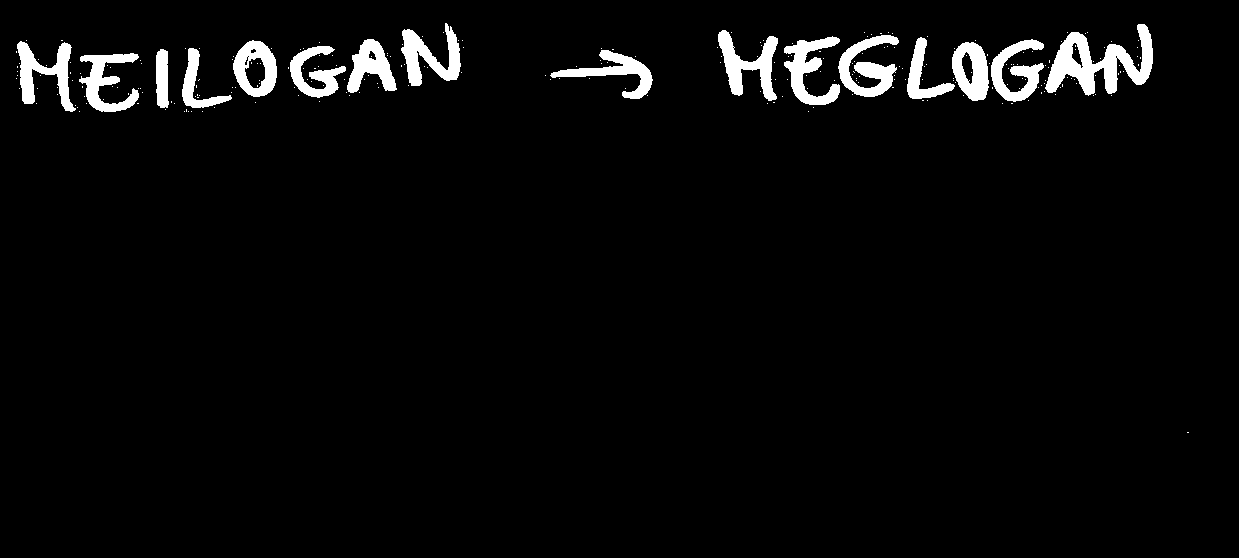 MEILOGAN → MEGLOGAN